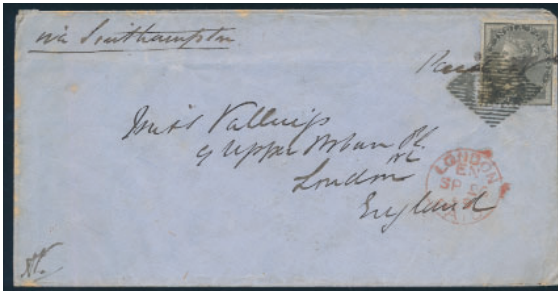 via Southampton
Paid
Miss Vallings
9 Upper Woburn Pl.
London
England
LONDON
SP